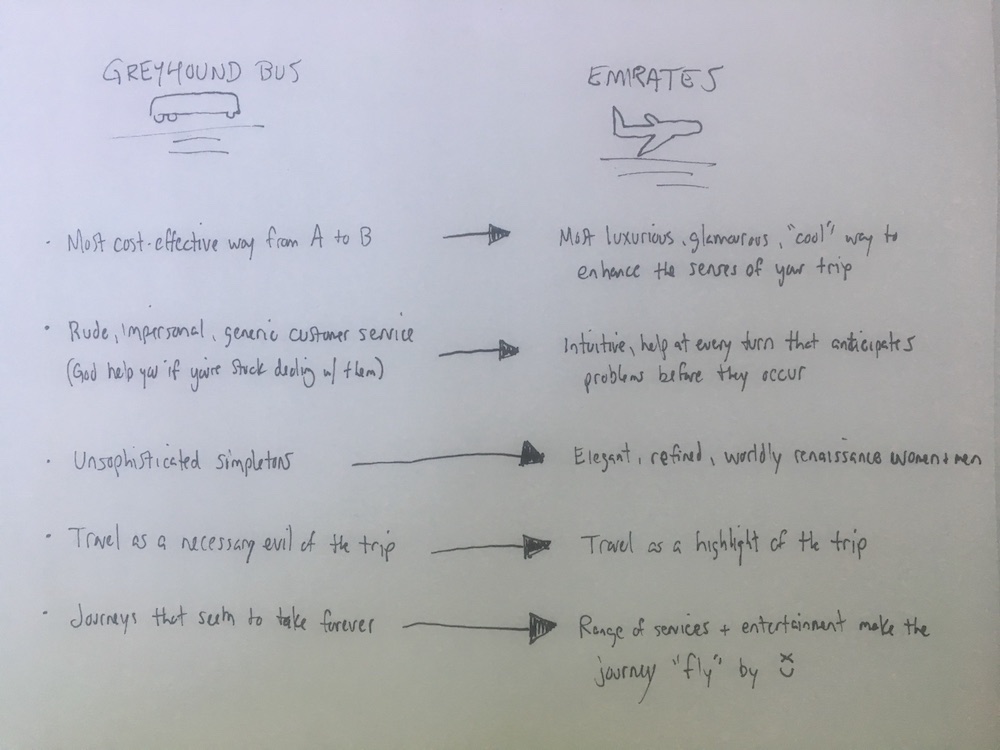 GREYHOUND BUS
EMIRATES
· Most cost-effective way from A to B
Most luxurious, glamourous, "cool" way to
enhance the senses of your trip
· Rude, impersonal, generic customer service
(God help you if you're stuck dealing w/ them)
Intuitive, help at every turn that anticipates
problems before they occur
· Unsophisticated simpletons
Elegant, refined, worldly renaissance women + men
· Travel as a necessary evil of the trip
Travel as a highlight of the trip
· Journeys that seem to take forever
Range of services + entertainment make the
journey "fly" by